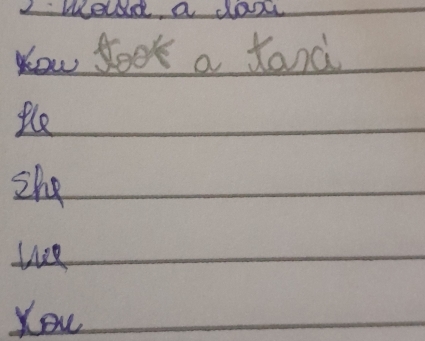 2. Would a taxi
You took a taxi
He
She
we
You